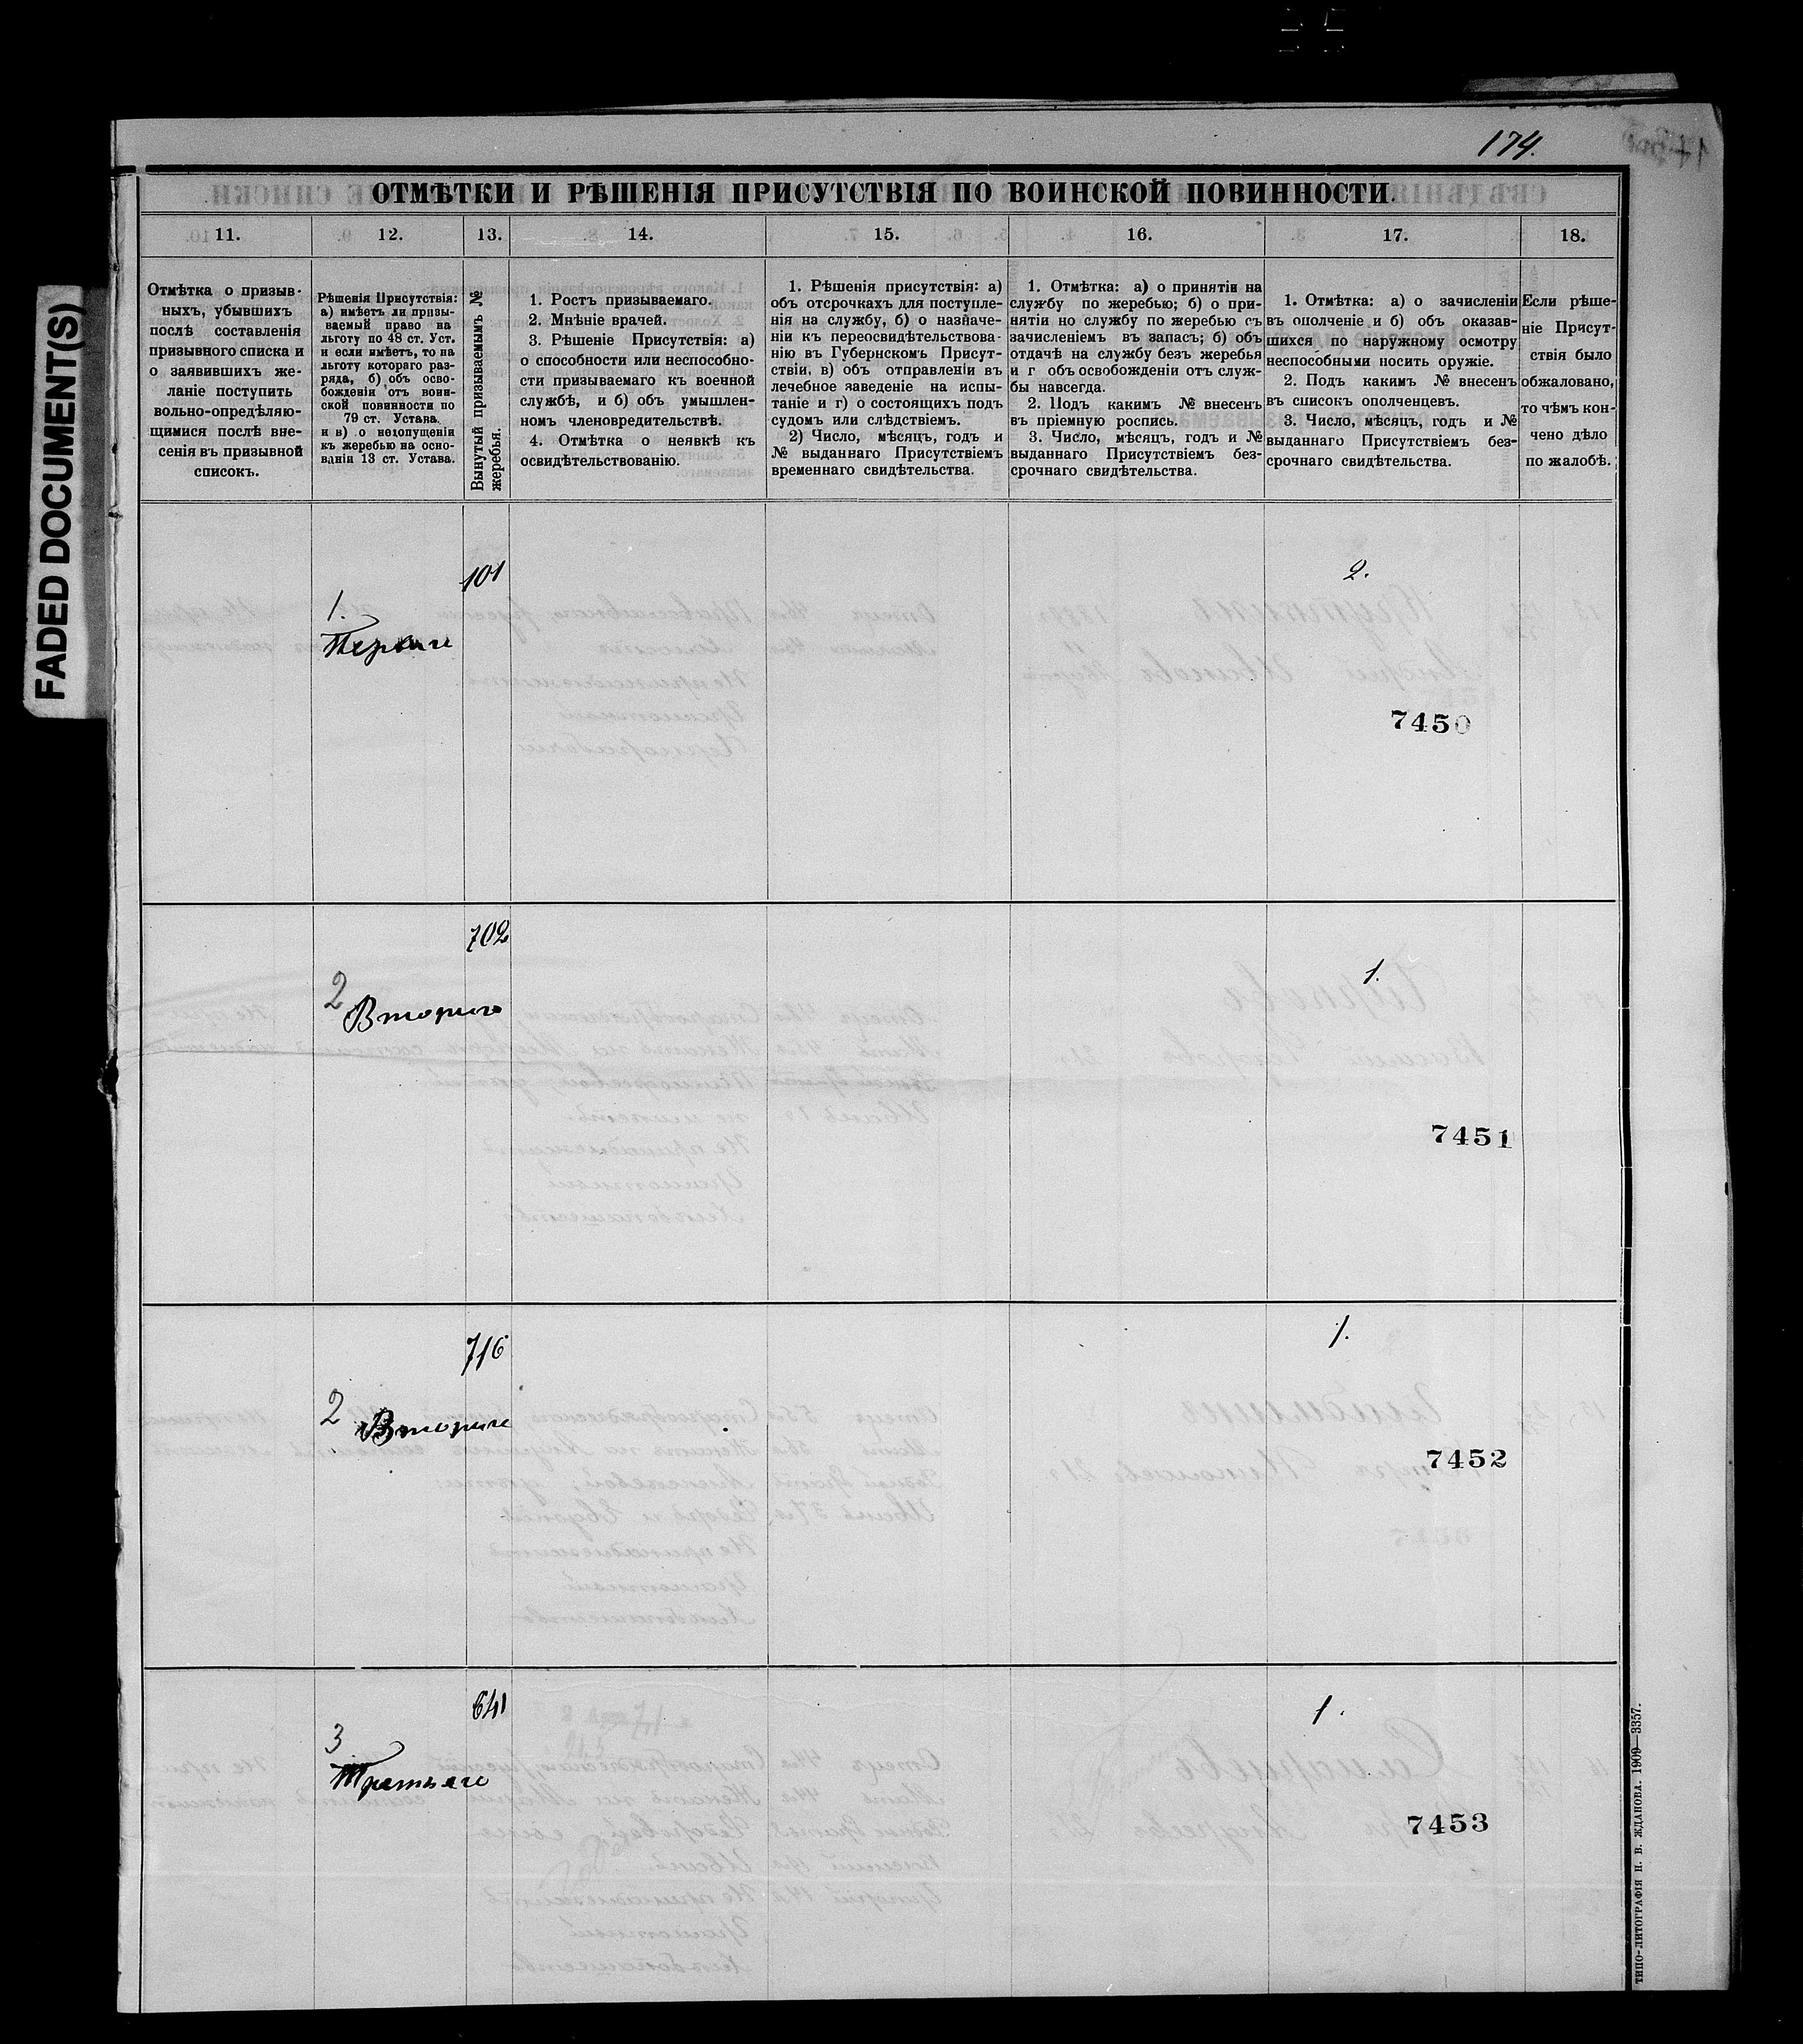 174.
ОТМѢТКИ И РѢШЕНІЯ ПРИСУТСТВІЯ ПО ВОИНСКОЙ ПОВИННОСТИ.
11.
12.
13.
14.
15.
16.
17.
18.
Отмѣтка о призыв-
ныхъ, убывшихъ
послѣ составленія
призывного списка и
о заявившихъ же-
ланіе поступить
вольно-опредѣляю-
щимися послѣ вне-
сенія въ призывной
списокъ.
Рѣшенія Присутствія:
а) имѣетъ ли призы-
ваемый право на
льготу по 48 ст. Уст.
и если имѣетъ, то на
льготу котораго раз-
ряда, б) объ осво-
божденіи отъ воин-
ской повинности по
79 ст. Устава.
и в) о недопущеніи
къ жеребью на осно-
ваніи 13 ст. Устава.
Вынутый призываемымъ №
жеребья.
1. Ростъ призываемаго.
2. Мнѣніе врачей.
3. Рѣшеніе Присутствія: а)
о способности или неспособно-
сти призываемаго къ военной
службѣ, и б) объ умышлен-
номъ членовредительствѣ.
4. Отмѣтка о неявкѣ къ
освидѣтельствованію.
1. Рѣшенія присутствія: а)
объ отсрочкахъ для поступле-
нія на службу, б) о назначе-
ніи къ переосвидѣтельствова-
нію въ Губернскомъ Присут-
ствіи, в) объ отправленіи въ
лечебное заведеніе на испы-
таніе и г) о состоящихъ подъ
судомъ или слѣдствіемъ.
2) Число, мѣсяцъ, годъ и
№ выданнаго Присутствіемъ
временнаго свидѣтельства.
1. Отмѣтка: а) о принятіи на
службу по жеребью; б) о при-
нятіи но службу по жеребью съ
зачисленіемъ въ запасъ; б) объ
отдачѣ на службу безъ жеребья
и г объ освобожденіи отъ служ-
бы навсегда.
2. Подъ какимъ № внесенъ
въ пріемную роспись.
3. Число, мѣсяцъ, годъ и №
выданнаго Присутствіемъ без-
срочнаго свидѣтельства.
1. Отмѣтка: а) о зачисленіи
въ ополченіе и б) объ оказав-
шихся по наружному осмотру
неспособными носить оружіе.
2. Подъ какимъ № внесенъ
въ списокъ ополченцевъ.
3. Число, мѣсяцъ, годъ и №
выданнаго Присутствіемъ без-
срочнаго свидѣтельства.
Если рѣше-
ніе Присут-
ствія было
обжаловано,
то чѣмъ кон-
чено дѣло
по жалобѣ.
FADED DOCUMENT(S)
101
2.
1.
Перваго
7450
702
1.
2
Второго
7451
716
1.
2
Второго
7452
641
1.
3
Третьяго
7453
ТИПО-ЛИТОГРАФІЯ П. В. ЖДАНОВА. 1909—3357.